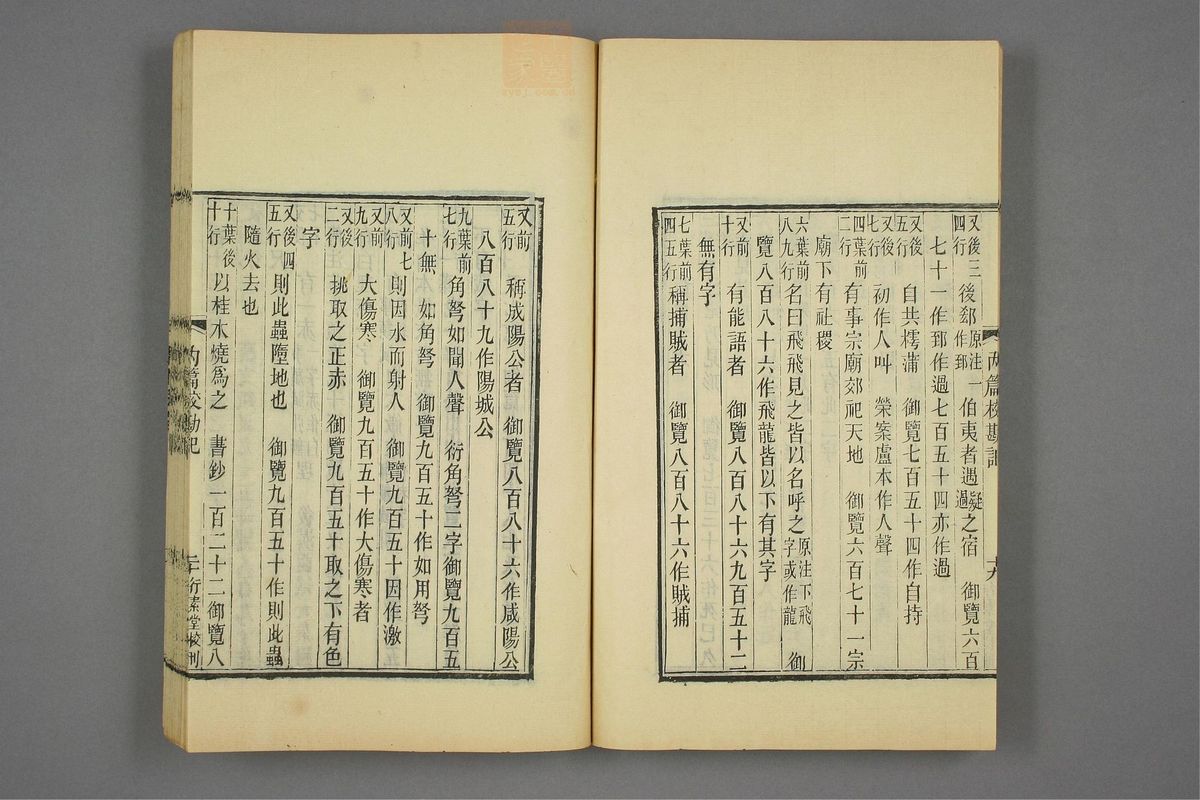 內篇校勘記 十九
又後三四行 後郄原注作郅 一伯夷者遇疑過之宿 御覽六百
七十一作郅作過七百五十四亦作過
又後五行 自共樗蒲 御覽七百五十四作自持
又後七行 初作人叫 榮案盧本作人聲
四葉前二行 有事宗廟郊祀天地 御覽六百七十一宗
廟下有社稷
六葉前八九行 名曰飛飛見之皆以名呼之原注下飛字或作龍 御
覽八百八十六作飛龍皆以下有其字
又前十行 有能語者 御覽八百八十六九百五十二
無有字
七葉前四五行 稱捕賊者 御覽八百八十六作賊捕
又前五行 稱成陽公者 御覽八百八十六作咸陽公
八百八十九作陽城公
九葉前七行 角弩如聞人聲 衍角弩二字御覽九百五
十無 如角弩 御覽九百五十作如用弩
又前七八行 則因水而射人 御覽九百五十因作激
又前九行 大傷寒 御覽九百五十作大傷寒者
又後二行 挑取之正赤 御覽九百五十取之下有色
字
又後四五行 則此蟲墮地也 御覽九百五十作則此蟲
隨火去也
十葉後十行 以桂木燒為之 書鈔一百二十二御覽八
內篇校勘記
平津館行素堂校刊